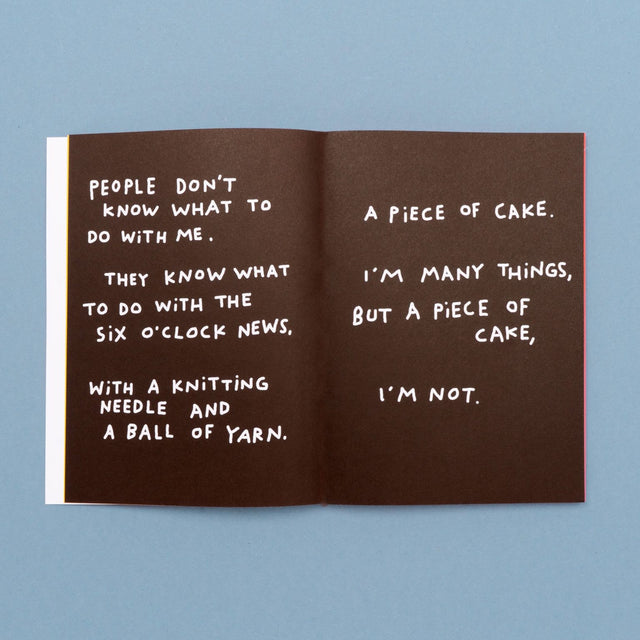 PEOPLE DON'T
KNOW WHAT TO
DO WiTH ME.
THEY KNOW WHAT
TO DO WiTH THE
SiX O'CLOCK NEWS,
WiTH A KNiTTiNG
NEEDLE AND
A BALL OF YARN.
A PiECE OF CAKE.
I'M MANY THiNGS,
BUT A PiECE OF
CAKE,
I'M NOT.